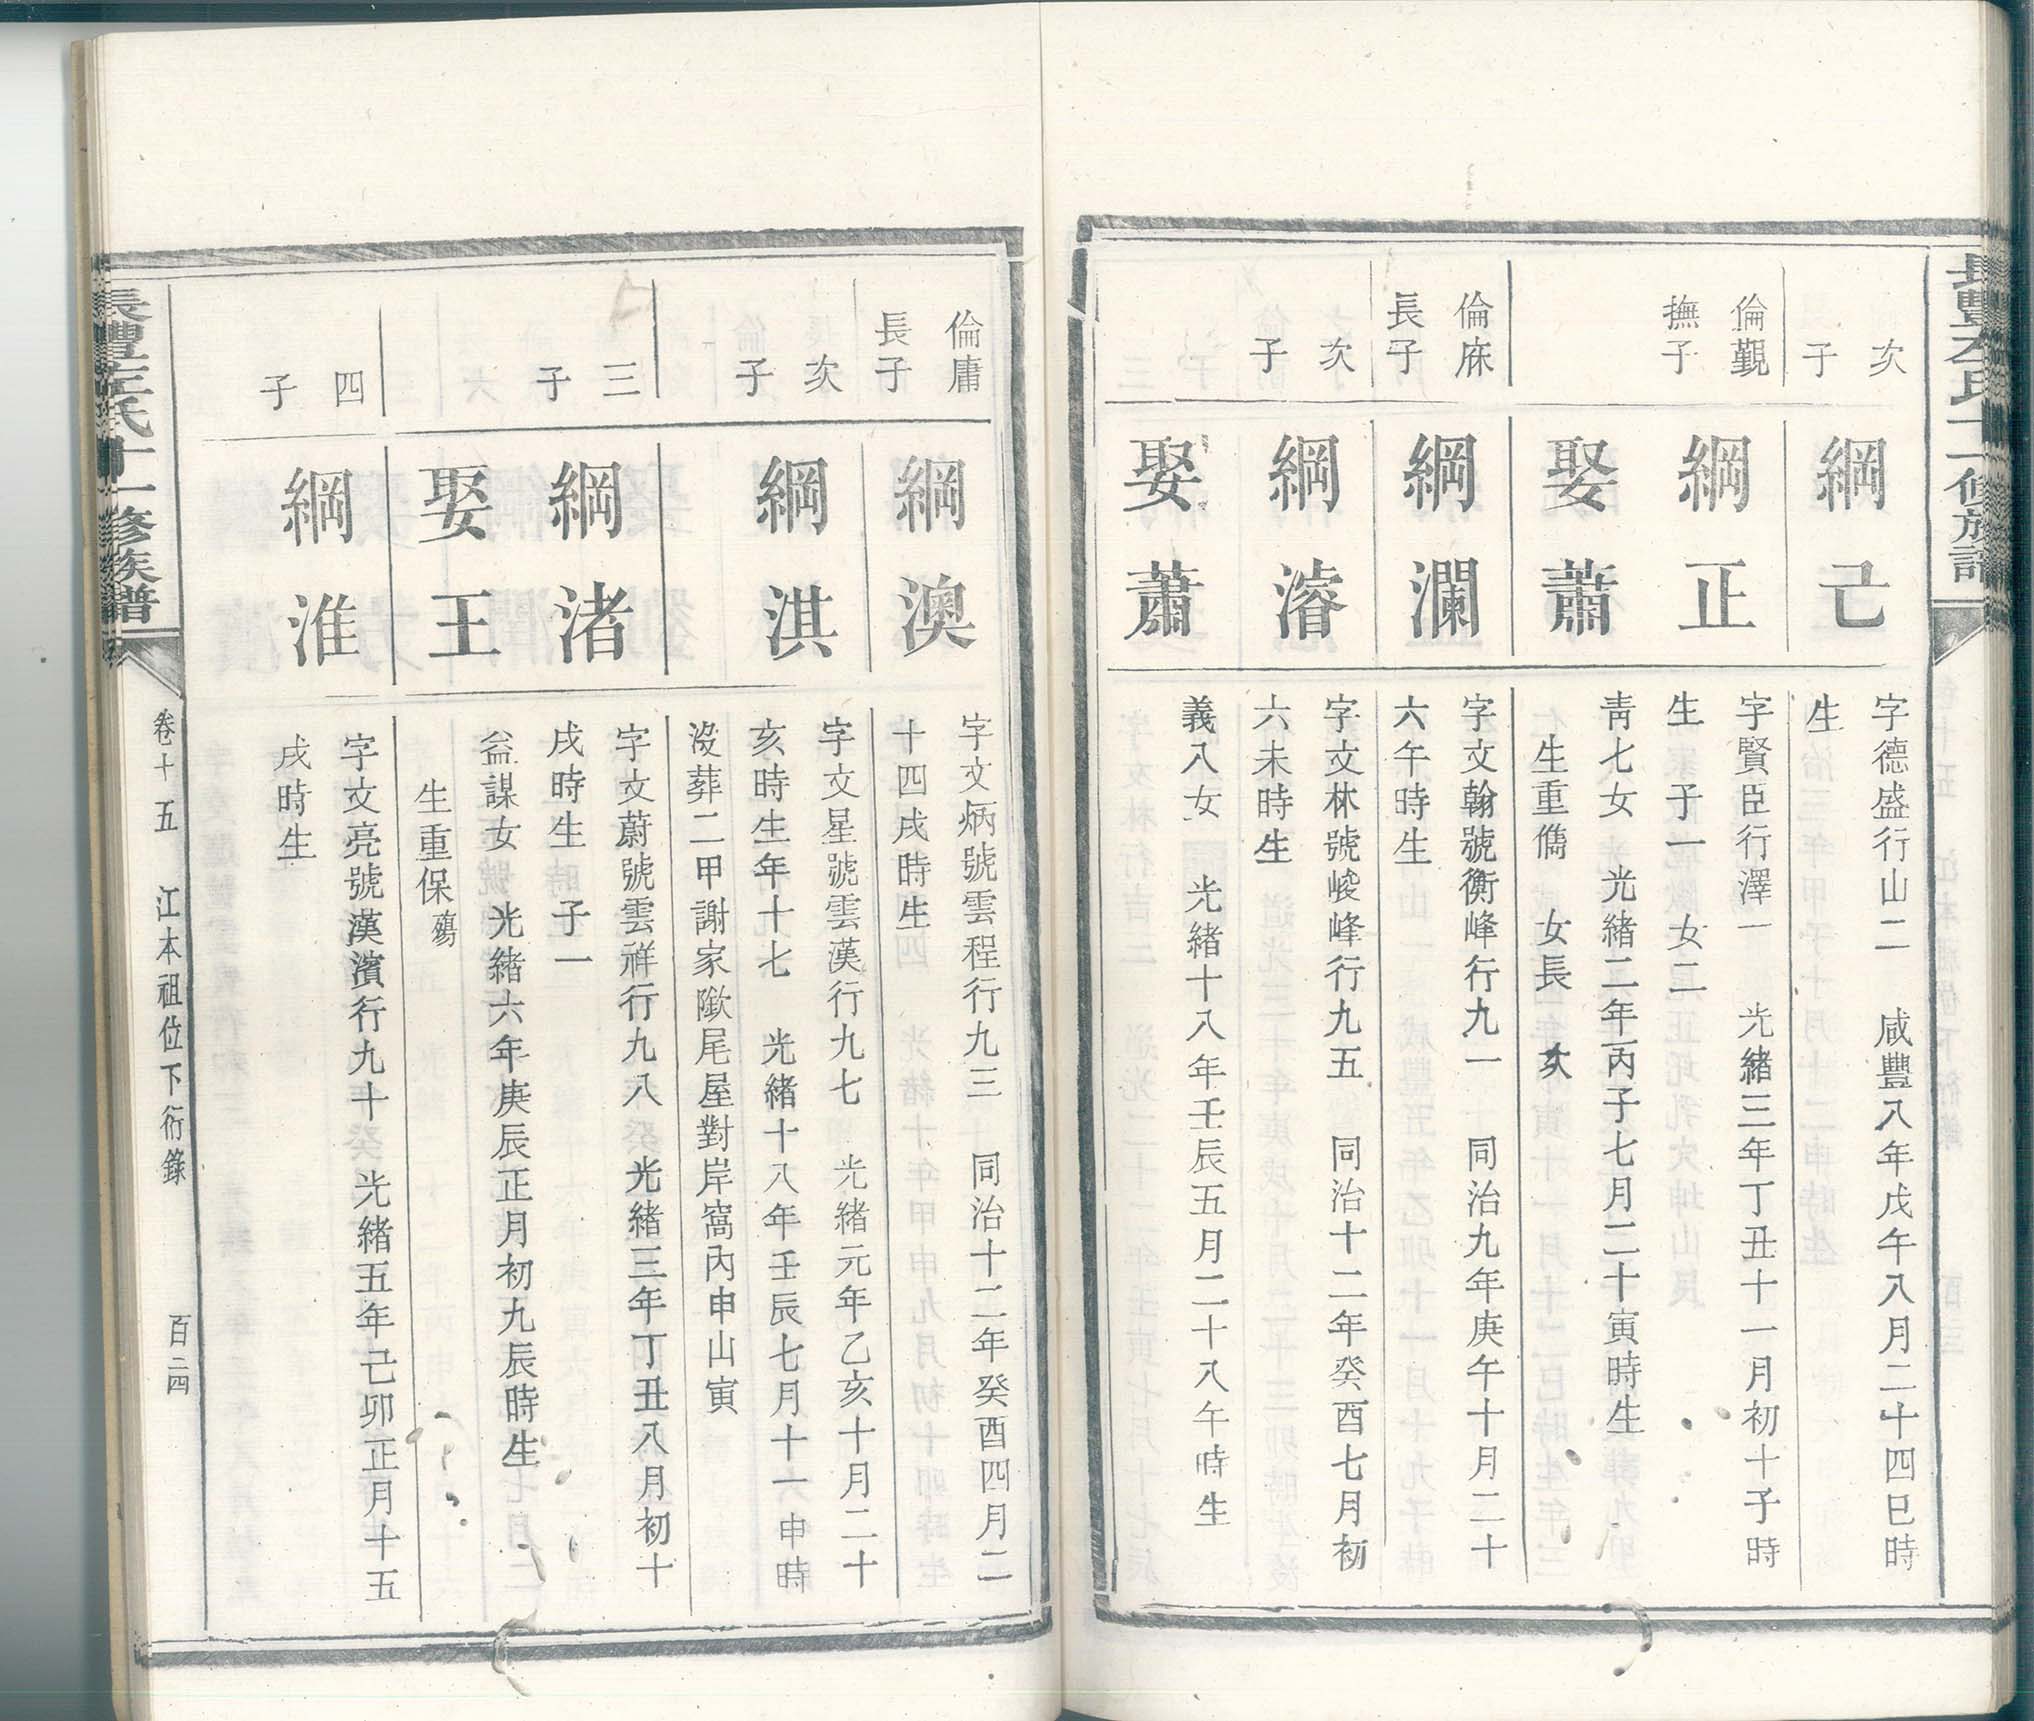 次
子
綱己
字德盛行山二 咸豐八年戊午八月二十四巳時
生
倫覲
撫子
綱正
字賢臣行澤一 光緒三年丁丑十一月初十子時
生 子一 女二
娶蕭
青七女 光緒二年丙子七月二十寅時生
生重儁 女長 次
倫庥
長子
綱瀾
字文翰號衡峰行九一 同治九年庚午十月二十
六午時生
次
子
綱濬
字文林號峻峰行九五 同治十二年癸酉七月初
六未時生
娶蕭
義八女 光緒十八年壬辰五月二十八午時生
倫庸
長子
綱澳
字文炳號雲程行九三 同治十二年癸酉四月二
十四戌時生
次
子
綱淇
字文星號雲漢行九七 光緒元年乙亥十月二十
亥時生年十七 光緒十八年壬辰七月十六申時
沒葬二甲謝家隞尾屋對岸窩內申山寅
三
子
綱渚
字文蔚號雲祥行九八 光緒三年丁丑八月初十
戌時生 子一
娶王
益謀女 光緒六年庚辰正月初九辰時生
生重保殤
四
子
綱淮
字文亮號漢濱行九十 光緒五年己卯正月十五
戌時生
長豐左氏十一修族譜
卷十五 江本祖位下衍錄 百二四